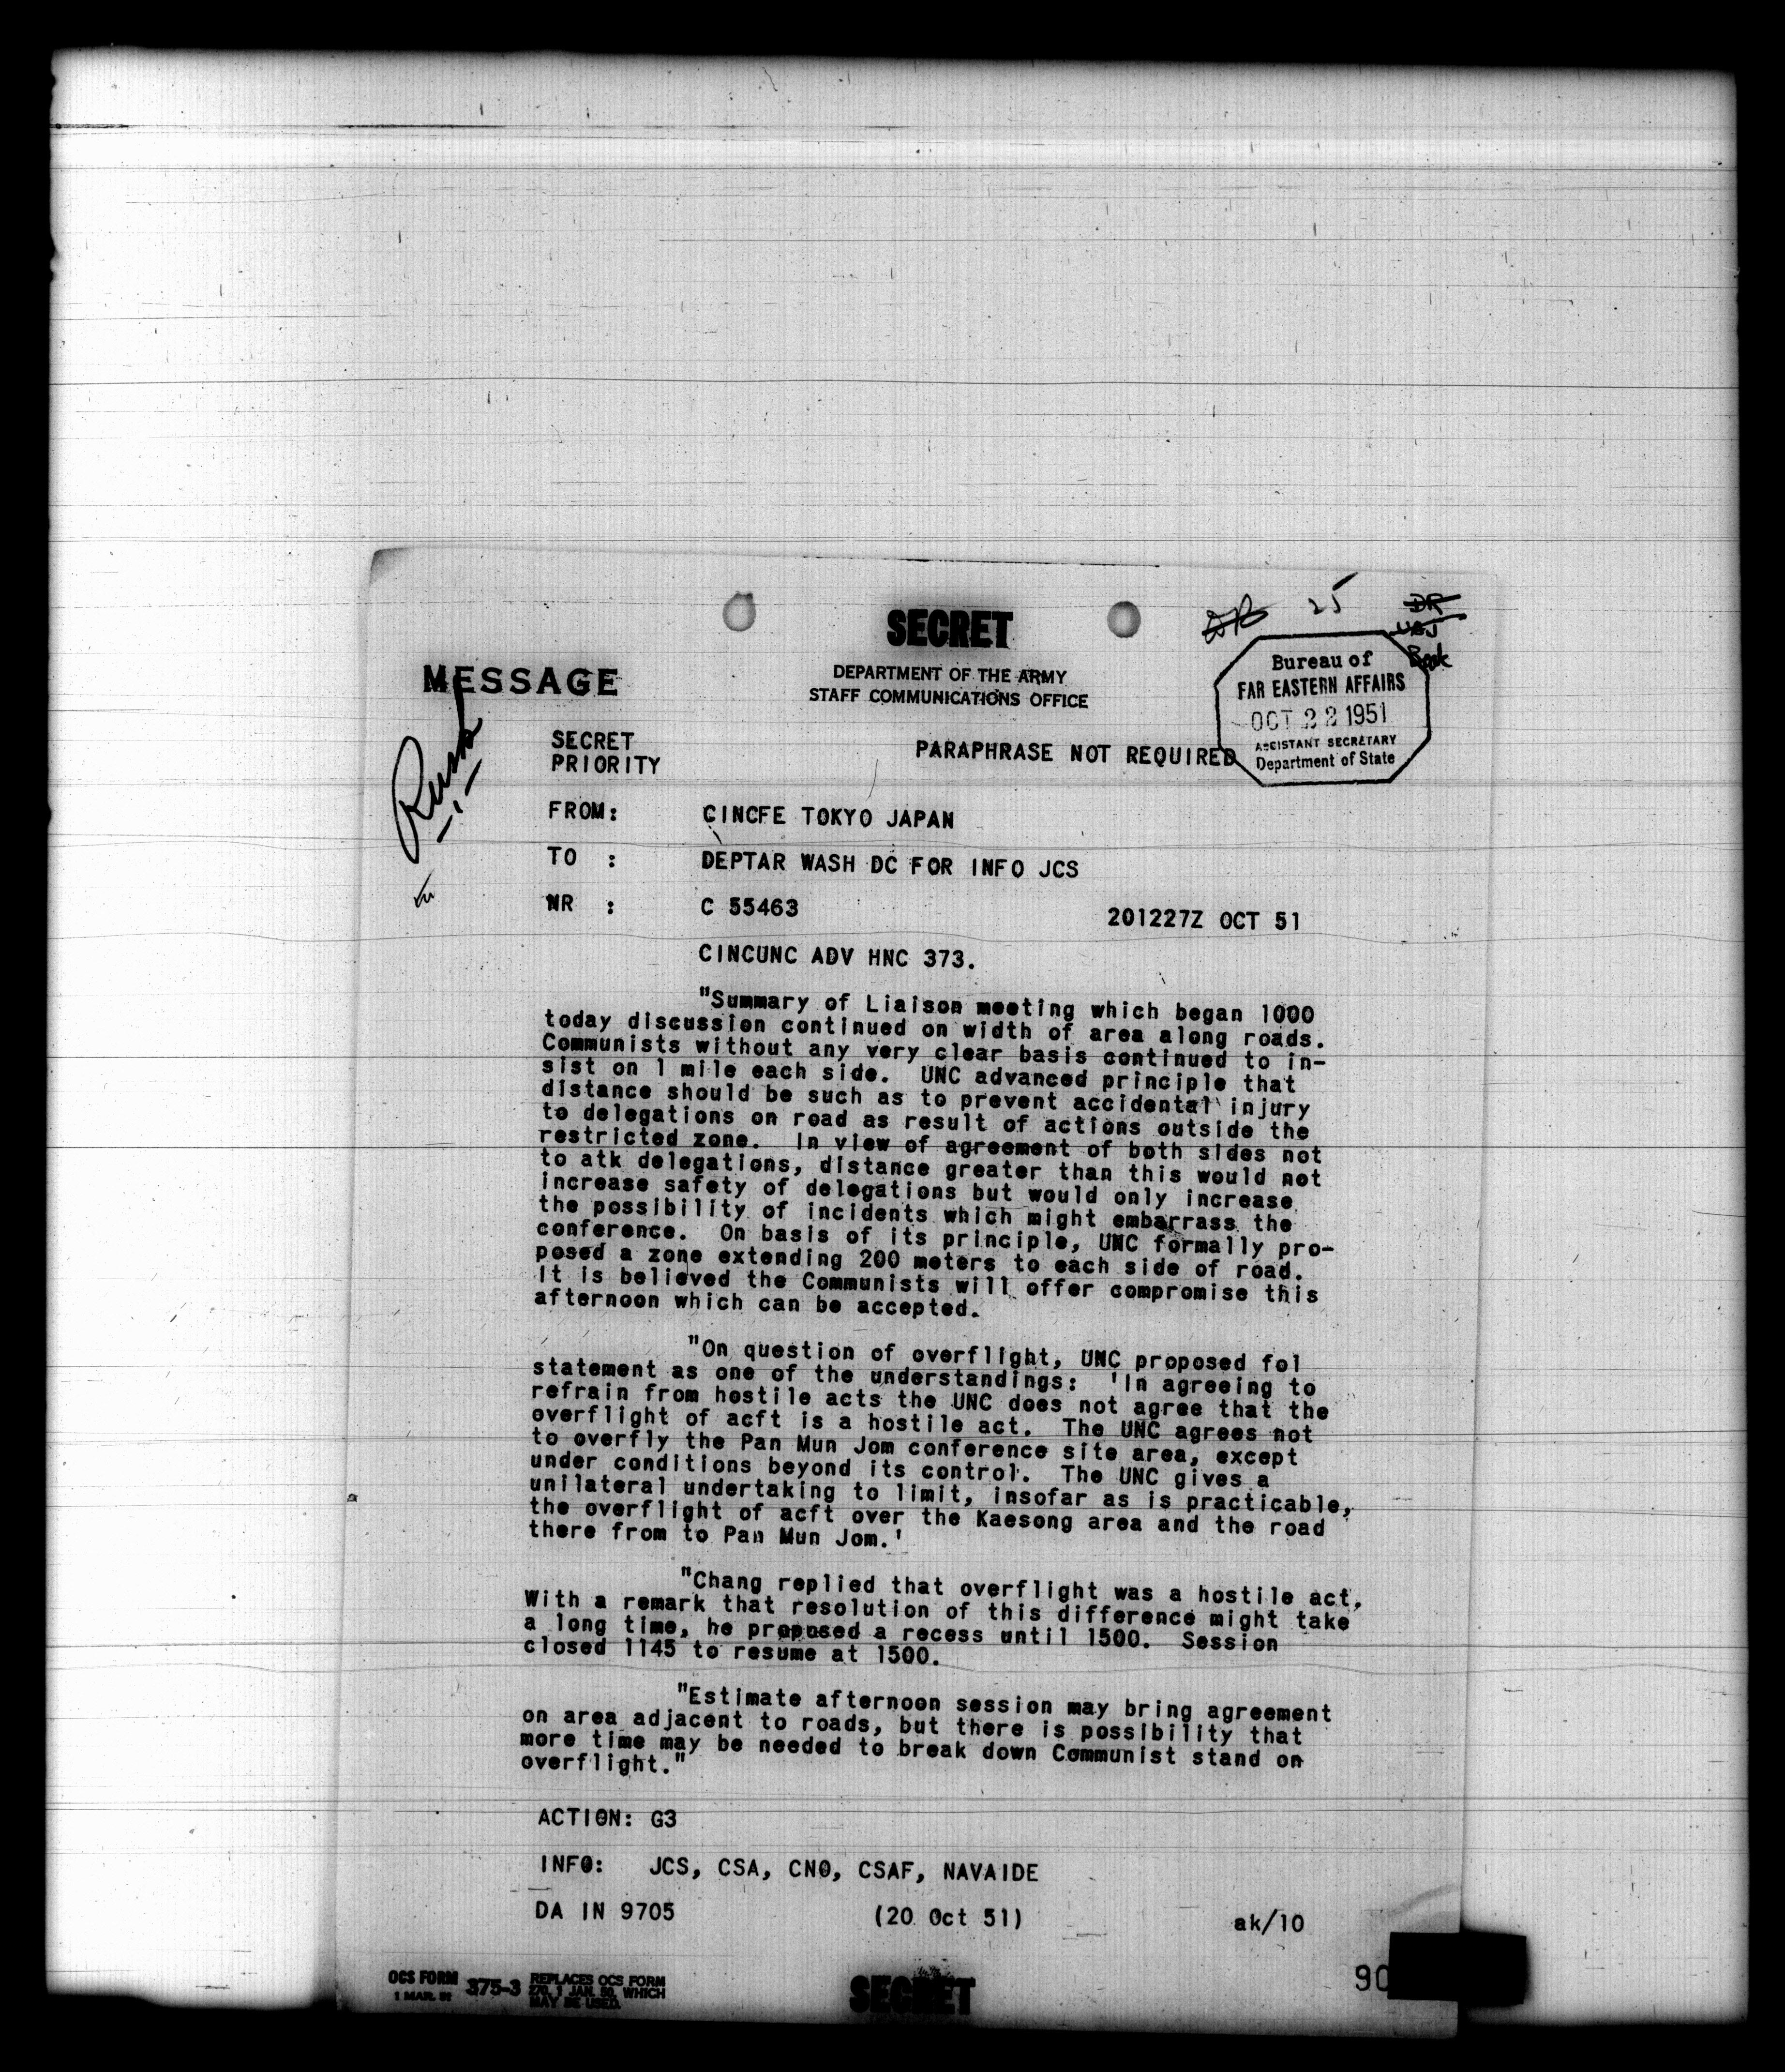 25
DR
SECRET
MESSAGE
DEPARTMENT OF THE ARMY
STAFF COMMUNICATIONS OFFICE
Bureau of
FAR EASTERN AFFAIRS
OCT 22 1951
ASSISTANT SECRETARY
Department of State
SECRET
PRIORITY
PARAPHRASE NOT REQUIRED
FROM: CINCFE TOKYO JAPAN
TO : DEPTAR WASH DC FOR INFO JCS
NR : C 55463 201227Z OCT 51
CINCUNC ADV HNC 373.
"Summary of Liaison meeting which began 1000
today discussion continued on width of area along roads.
Communists without any very clear basis continued to in-
sist on 1 mile each side. UNC advanced principle that
distance should be such as to prevent accidental injury
to delegations on road as result of actions outside the
restricted zone. In view of agreement of both sides not
to atk delegations, distance greater than this would not
increase safety of delegations but would only increase
the possibility of incidents which might embarrass the
conference. On basis of its principle, UNC formally pro-
posed a zone extending 200 meters to each side of road.
It is believed the Communists will offer compromise this
afternoon which can be accepted.
"On question of overflight, UNC proposed fol
statement as one of the understandings: 'In agreeing to
refrain from hostile acts the UNC does not agree that the
overflight of acft is a hostile act. The UNC agrees not
to overfly the Pan Mun Jom conference site area, except
under conditions beyond its control. The UNC gives a
unilateral undertaking to limit, insofar as is practicable,
the overflight of acft over the Kaesong area and the road
there from to Pan Mun Jom.'
"Chang replied that overflight was a hostile act,
With a remark that resolution of this difference might take
a long time, he proposed a recess until 1500. Session
closed 1145 to resume at 1500.
"Estimate afternoon session may bring agreement
on area adjacent to roads, but there is possibility that
more time may be needed to break down Communist stand on
overflight."
ACTION: G3
INFO: JCS, CSA, CNO, CSAF, NAVAIDE
DA IN 9705 (20 Oct 51) ak/10
OCS FORM 375-3 REPLACES OCS FORM
1 MAR. 51 270, 1 JAN. 50, WHICH
MAY BE USED.
SECRET
90